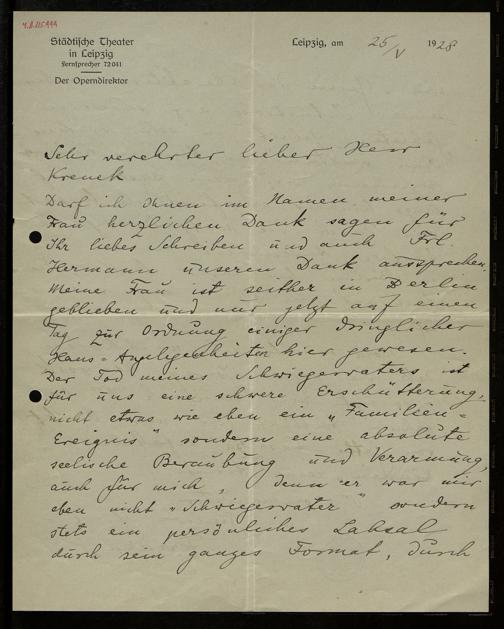 Städtische Theater
in Leipzig
Fernsprecher 72041
Der Operndirektor
Leipzig, am 25/V 1928
Sehr verehrter lieber Herr
Krenek
Darf ich Ihnen im Namen meiner
Frau herzlichen Dank sagen für
Ihr liebes Schreiben und auch Frl
Hermann unseren Dank aussprechen.
Meine Frau ist seither in Berlin
geblieben und nur jetzt auf einen
Tag zur Ordnung einiger dringlicher
Haus-Angelegenheiten hier gewesen.
Der Tod meines Schwiegervaters ist
für uns eine schwere Erschütterung,
nicht etwas wie eben ein „Familien=
Ereignis" sondern eine absolute
seelische Beraubung und Verarmung,
auch für mich, denn er war mir
eben nicht „Schwiegervater" sondern
stets ein persönliches Labsal
durch sein ganzes Format, durch